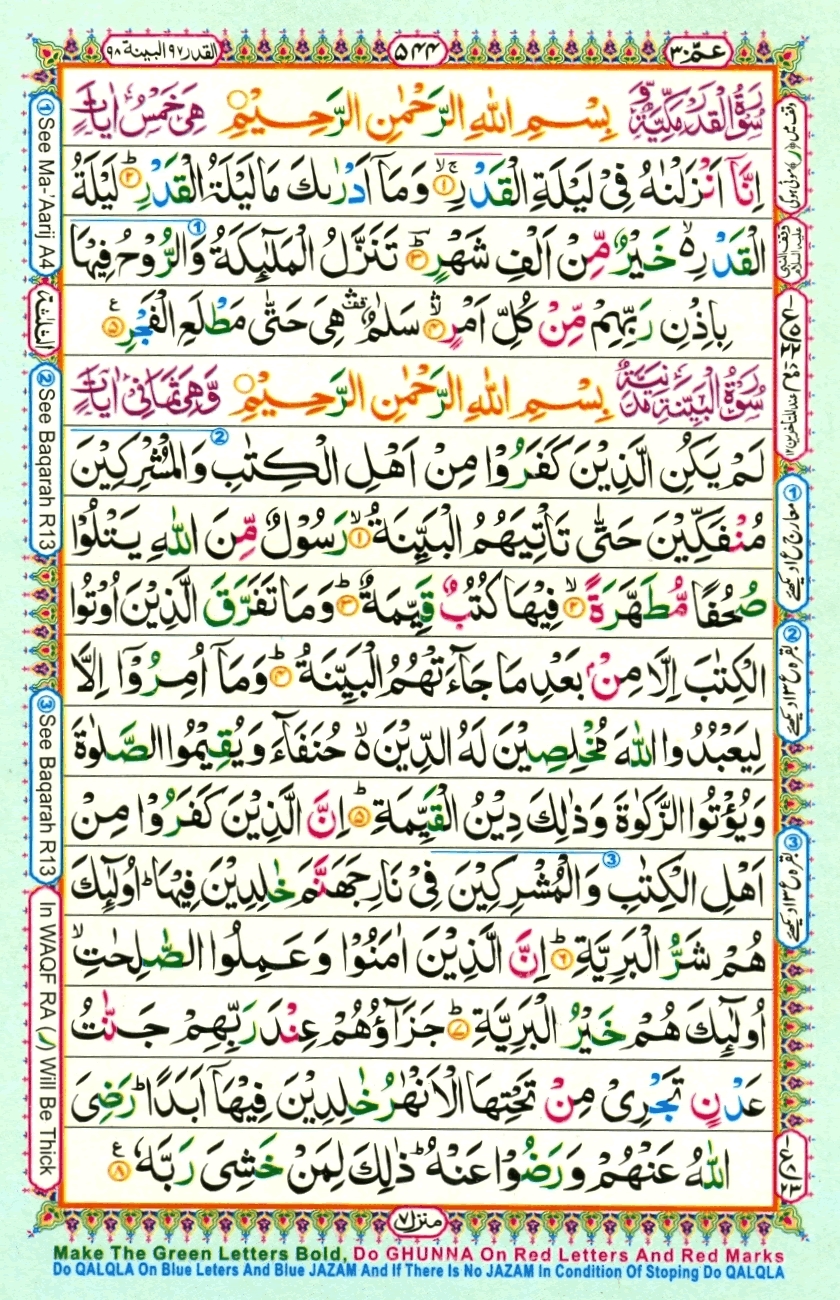 عمّ ۳۰
۵۴۴
القدر ۹۷ البينة ۹۸
سُوْرَةُ الْقَدْرِ مَكِّيَّةٌ وَّ بِسْمِ اللهِ الرَّحْمٰنِ الرَّحِيْمِ هِىَ خَمْسُ اٰيَاتٍ
اِنَّاۤ اَنْزَلْنٰهُ فِىْ لَيْلَةِ الْقَدْرِ ۚۖ ﴿۱﴾ وَمَاۤ اَدْرٰىكَ مَا لَيْلَةُ الْقَدْرِ ؕ ﴿۲﴾ لَيْلَةُ
الْقَدْرِ ۙ خَيْرٌ مِّنْ اَلْفِ شَهْرٍ ؕ ﴿۳﴾ تَنَزَّلُ الْمَلٰٓئِكَةُ وَالرُّوْحُ فِيْهَا
بِاِذْنِ رَبِّهِمْ مِّنْ كُلِّ اَمْرٍ ۙ ﴿۴﴾ سَلٰمٌ ۛ هِىَ حَتّٰى مَطْلَعِ الْفَجْرِ ﴿۵﴾
سُوْرَةُ الْبَيِّنَةِ مَدَنِيَّةٌ بِسْمِ اللهِ الرَّحْمٰنِ الرَّحِيْمِ وَّهِىَ ثَمَانِىْ اٰيَاتٍ
لَمْ يَكُنِ الَّذِيْنَ كَفَرُوْا مِنْ اَهْلِ الْكِتٰبِ وَالْمُشْرِكِيْنَ
مُنْفَكِّيْنَ حَتّٰى تَاْتِيَهُمُ الْبَيِّنَةُ ۙ ﴿۱﴾ رَسُوْلٌ مِّنَ اللهِ يَتْلُوْا
صُحُفًا مُّطَهَّرَةً ۙ ﴿۲﴾ فِيْهَا كُتُبٌ قَيِّمَةٌ ؕ ﴿۳﴾ وَمَا تَفَرَّقَ الَّذِيْنَ اُوْتُوا
الْكِتٰبَ اِلَّا مِنْۢ بَعْدِ مَا جَآءَتْهُمُ الْبَيِّنَةُ ؕ ﴿۴﴾ وَمَاۤ اُمِرُوْۤا اِلَّا
لِيَعْبُدُوا اللهَ مُخْلِصِيْنَ لَهُ الدِّيْنَ ۙ حُنَفَآءَ وَيُقِيْمُوا الصَّلٰوةَ
وَيُؤْتُوا الزَّكٰوةَ وَذٰلِكَ دِيْنُ الْقَيِّمَةِ ؕ ﴿۵﴾ اِنَّ الَّذِيْنَ كَفَرُوْا مِنْ
اَهْلِ الْكِتٰبِ وَالْمُشْرِكِيْنَ فِىْ نَارِ جَهَنَّمَ خٰلِدِيْنَ فِيْهَا ؕ اُولٰٓئِكَ
هُمْ شَرُّ الْبَرِيَّةِ ؕ ﴿۶﴾ اِنَّ الَّذِيْنَ اٰمَنُوْا وَعَمِلُوا الصّٰلِحٰتِ ۙ
اُولٰٓئِكَ هُمْ خَيْرُ الْبَرِيَّةِ ؕ ﴿۷﴾ جَزَآؤُهُمْ عِنْدَ رَبِّهِمْ جَنّٰتُ
عَدْنٍ تَجْرِىْ مِنْ تَحْتِهَا الْاَنْهٰرُ خٰلِدِيْنَ فِيْهَاۤ اَبَدًا ؕ رَضِىَ
اللهُ عَنْهُمْ وَرَضُوْا عَنْهُ ؕ ذٰلِكَ لِمَنْ خَشِىَ رَبَّهٗ ﴿۸﴾
منزل ۷
① See Ma-'Aarij A4
الثلثة
② See Baqarah R13
③ See Baqarah R13
In WAQF RA (ر) Will Be Thick
Make The Green Letters Bold, Do GHUNNA On Red Letters And Red Marks
Do QALQLA On Blue Leters And Blue JAZAM And If There Is No JAZAM In Condition Of Stoping Do QALQLA